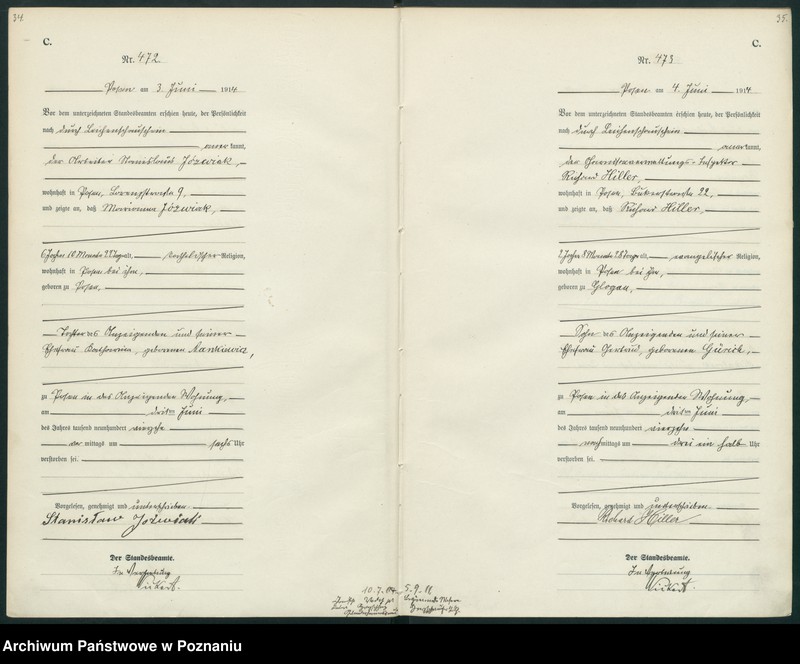 34.
C.
Nr. 472.
Posen am 3. Juni 1914
Vor dem unterzeichneten Standesbeamten erschien heute, der Persönlichkeit
nach durch Leichenschauschein
anerkannt,
der Arbeiter Stanislaus Józwiak,
wohnhaft in Posen, 9,
und zeigte an, daß Marianna Józwiak,
6 Jahre 10 Monate alt, katholischer Religion,
wohnhaft in Posen bei ihm,
geboren zu Posen,
Tochter des Anzeigenden und seiner
Ehefrau Katharina, geborenen Mankiewicz,
zu Posen in des Anzeigenden Wohnung,
am dritten Juni
des Jahres tausend neunhundert vierzehn
vor mittags um sechs Uhr
verstorben sei.
Vorgelesen, genehmigt und unterschrieben
Stanisław Józwiak
Der Standesbeamte.
In Vertretung
35.
C.
Nr. 473
Posen am 4. Juni 1914
Vor dem unterzeichneten Standesbeamten erschien heute, der Persönlichkeit
nach durch Leichenschauschein
anerkannt,
der Inspektor
Richard Hiller,
wohnhaft in Posen, 22,
und zeigte an, daß Richard Hiller,
2 Jahre 8 Monate alt, evangelischer Religion,
wohnhaft in Posen bei ihm,
geboren zu Glogau,
Sohn des Anzeigenden und seiner
Ehefrau Gertrud, geborenen
zu Posen in des Anzeigenden Wohnung,
am dritten Juni
des Jahres tausend neunhundert vierzehn
nachmittags um drei ein halb Uhr
verstorben sei.
Vorgelesen, genehmigt und unterschrieben.
Richard Hiller
Der Standesbeamte.
In Vertretung
Archiwum Państwowe w Poznaniu